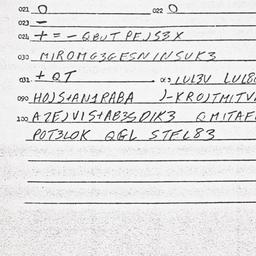 021 O 022 O
023 –
024 + = – QBUT PEJS3X
030 MIROMG3GESNINSUK3
031 + QT 063 LUL3U LUL8
090 HOJS+AN1PABA )-KROJTMITVA
100 A7EJVIS+AB3SDIK3 QMITAE
POT3LOK QGL STFL83